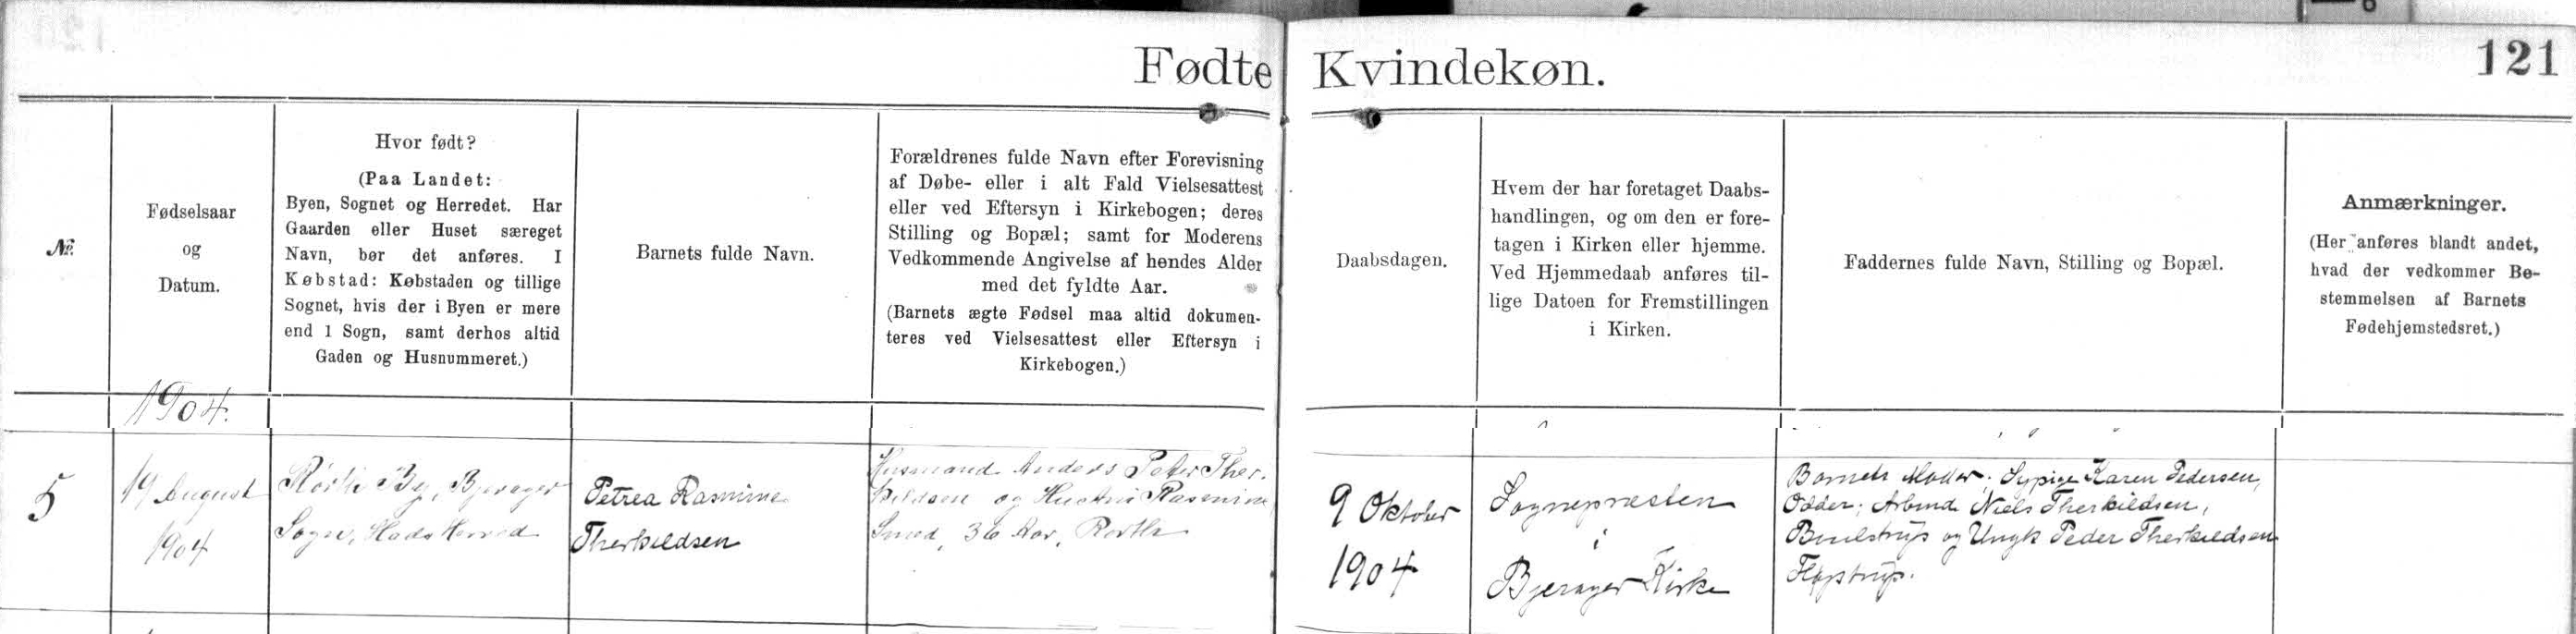 Fødte Kvindekøn.
121
№
Fødselsaar
og
Datum.
Hvor født?
(Paa Landet:
Byen, Sognet og Herredet. Har
Gaarden eller Huset særeget
Navn, bør det anføres. I
Købstad: Købstaden og tillige
Sognet, hvis der i Byen er mere
end 1 Sogn, samt derhos altid
Gaden og Husnummeret.)
Barnets fulde Navn.
Forældrenes fulde Navn efter Forevisning
af Døbe- eller i alt Fald Vielsesattest
eller ved Eftersyn i Kirkebogen; deres
Stilling og Bopæl; samt for Moderens
Vedkommende Angivelse af hendes Alder
med det fyldte Aar.
(Barnets ægte Fødsel maa altid dokumen-
teres ved Vielsesattest eller Eftersyn i
Kirkebogen.)
Daabsdagen.
Hvem der har foretaget Daabs-
handlingen, og om den er fore-
tagen i Kirken eller hjemme.
Ved Hjemmedaab anføres til-
lige Datoen for Fremstillingen
i Kirken.
Faddernes fulde Navn, Stilling og Bopæl.
Anmærkninger.
(Her anføres blandt andet,
hvad der vedkommer Be-
stemmelsen af Barnets
Fødehjemstedsret.)
1904.
5
19 August
1904
By, Bjerager
Sogn, Hads Herred
Petrea Rasmine
Therkildsen
Husmand Anders Peter Ther-
kildsen og Hustru Rasmine
Smed, 36 Aar,
9 Oktober
1904
Sognepræsten
i
Bjerager Kirke
Barnets Moder; Sypige Karen Pedersen,
Odder; Arbmd. Niels Therkildsen,
og Ungk Peder Therkildsen